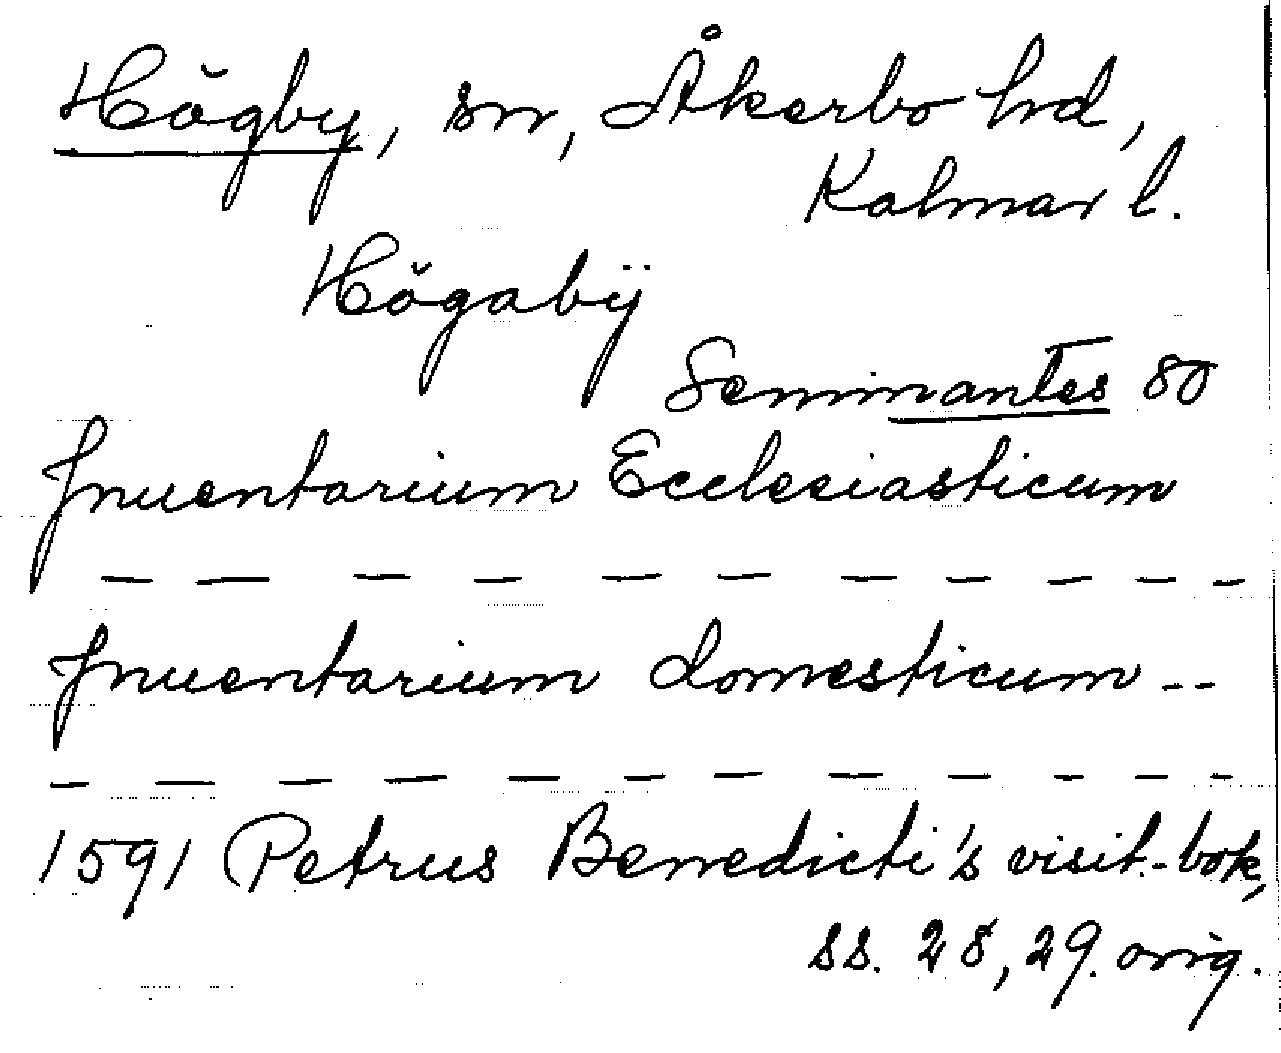 Högby, sn, Åkerbo hd,
Kalmar l.
Högabÿ
Seminantes 80
Inuentarium Ecclesiasticum
— — — — — — — — — — —
Inuentarium domesticum --
— — — — — — — — — — —
1591 Petrus Benedicti's visit.-bok,
ss. 28, 29. orig.